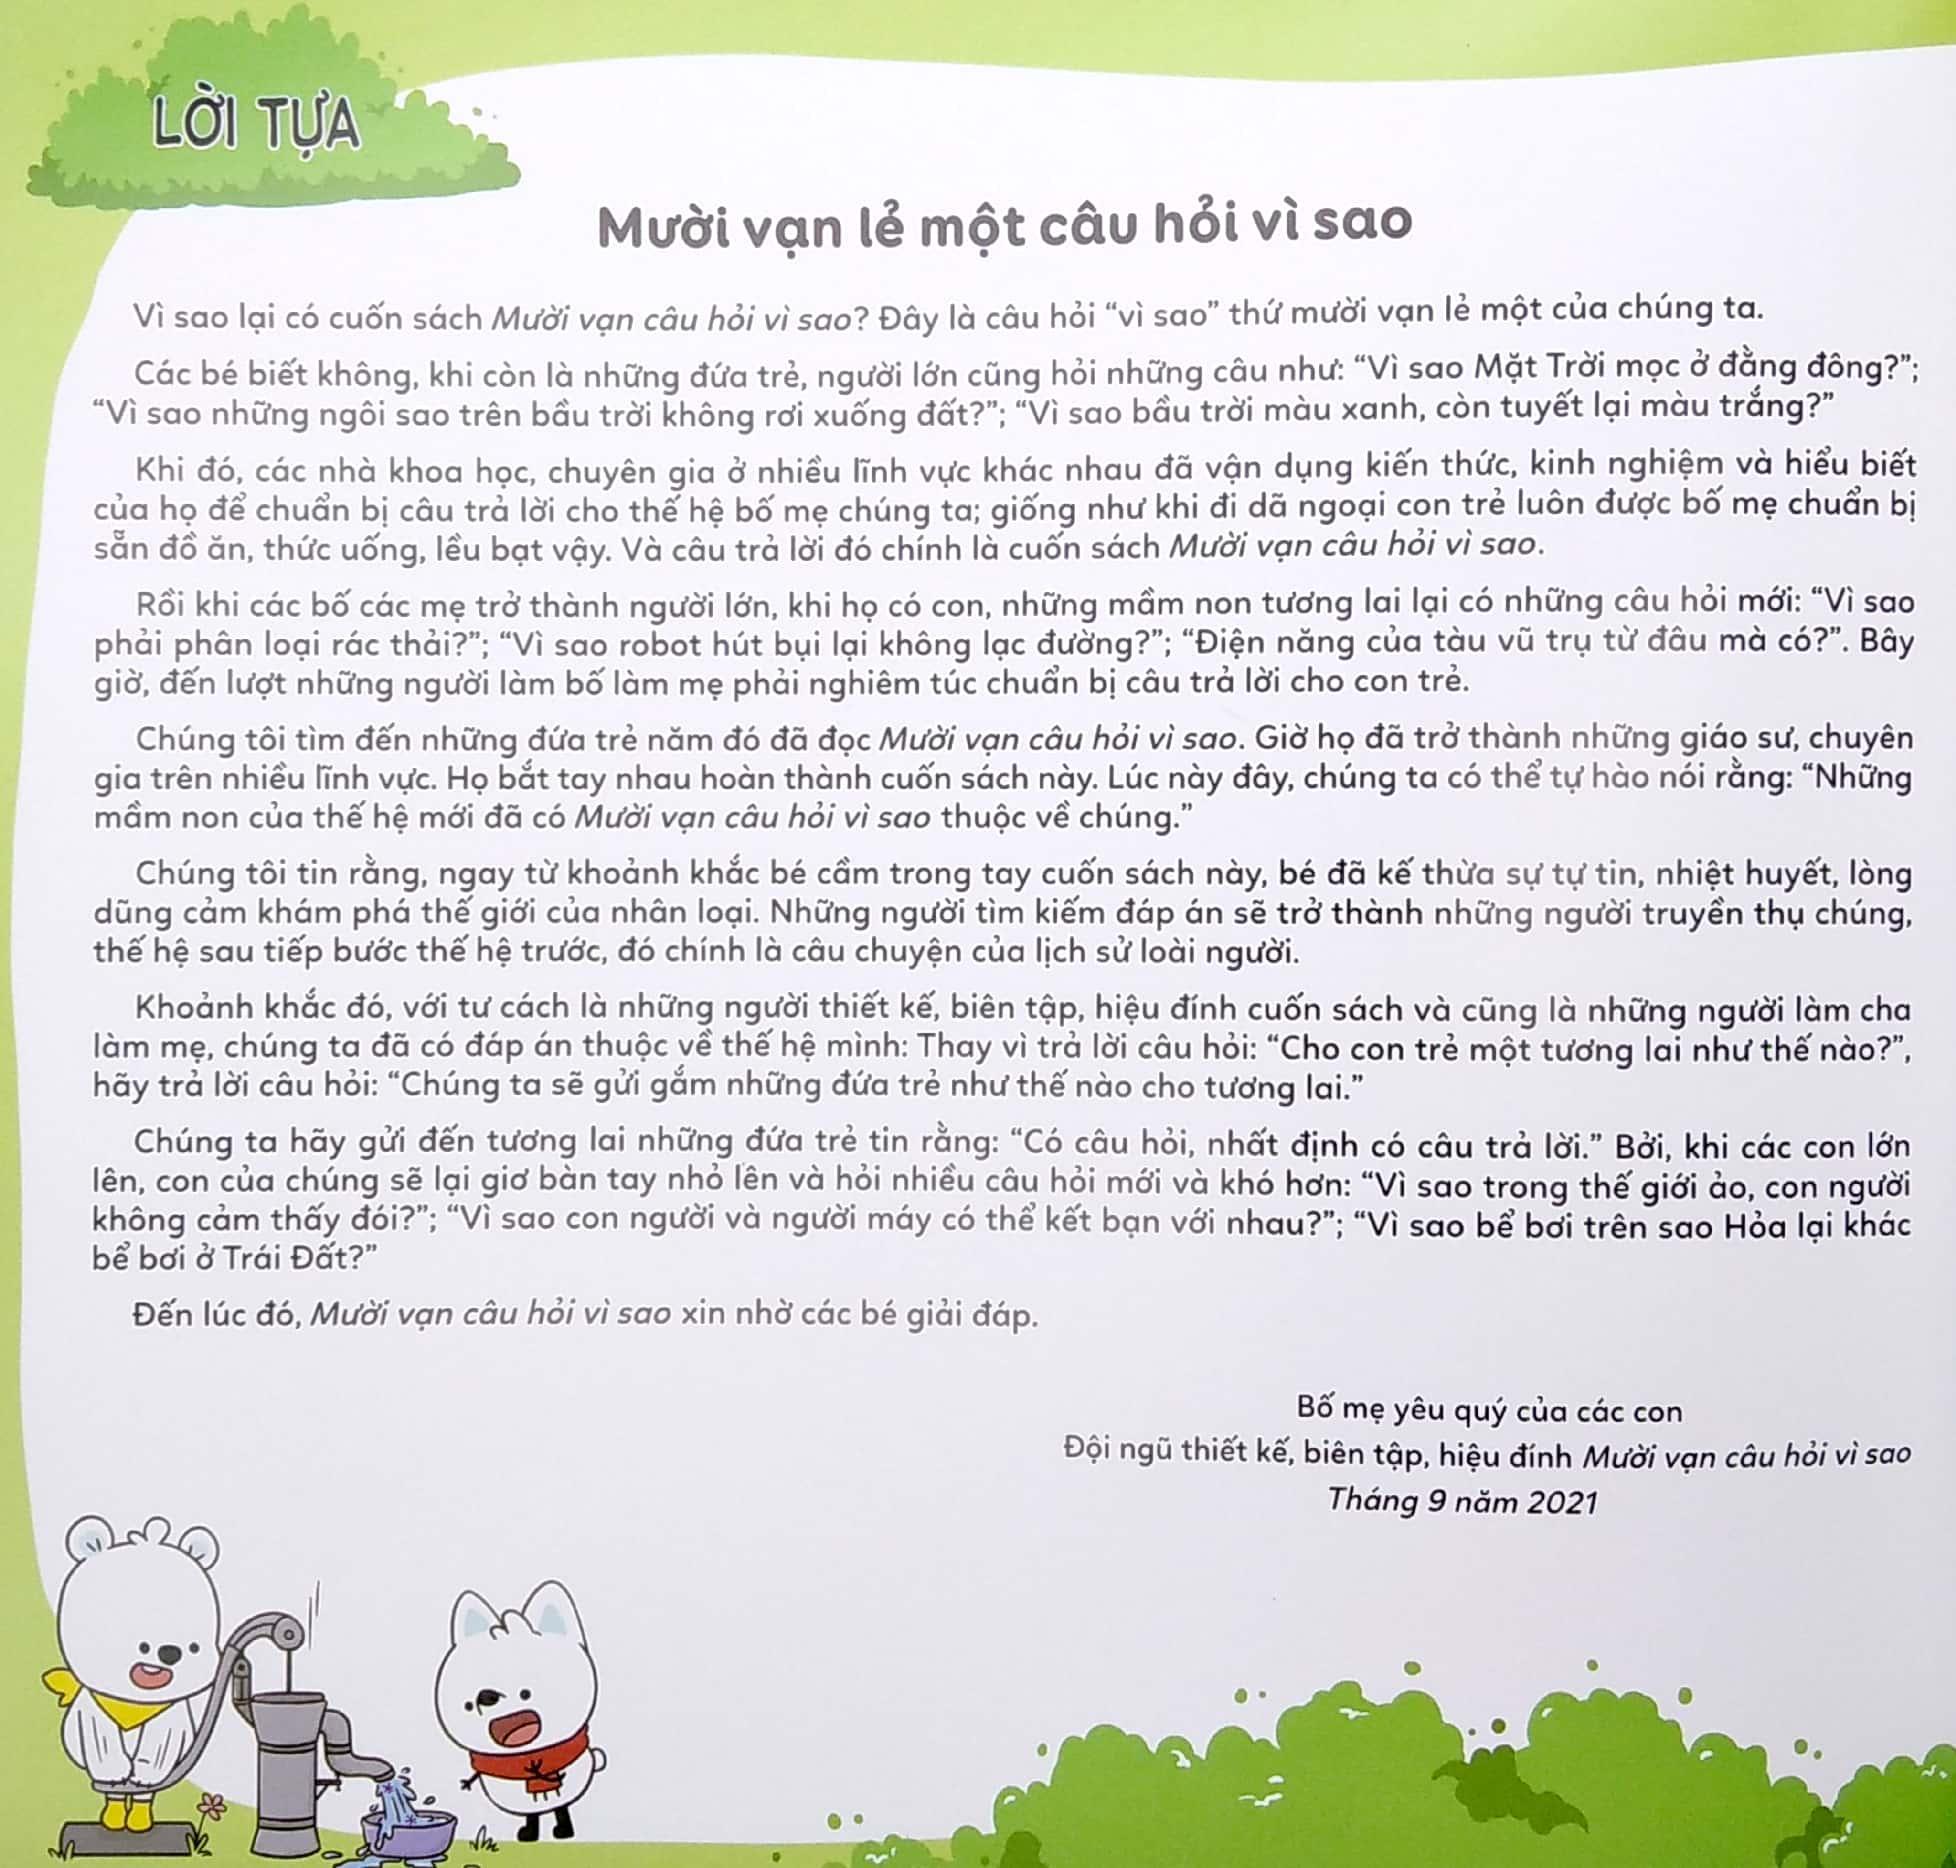 LỜI TỰA
Mười vạn lẻ một câu hỏi vì sao
Vì sao lại có cuốn sách Mười vạn câu hỏi vì sao? Đây là câu hỏi “vì sao” thứ mười vạn lẻ một của chúng ta.
Các bé biết không, khi còn là những đứa trẻ, người lớn cũng hỏi những câu như: “Vì sao Mặt Trời mọc ở đằng đông?”;
“Vì sao những ngôi sao trên bầu trời không rơi xuống đất?”; “Vì sao bầu trời màu xanh, còn tuyết lại màu trắng?”
Khi đó, các nhà khoa học, chuyên gia ở nhiều lĩnh vực khác nhau đã vận dụng kiến thức, kinh nghiệm và hiểu biết
của họ để chuẩn bị câu trả lời cho thế hệ bố mẹ chúng ta; giống như khi đi dã ngoại con trẻ luôn được bố mẹ chuẩn bị
sẵn đồ ăn, thức uống, lều bạt vậy. Và câu trả lời đó chính là cuốn sách Mười vạn câu hỏi vì sao.
Rồi khi các bố các mẹ trở thành người lớn, khi họ có con, những mầm non tương lai lại có những câu hỏi mới: “Vì sao
phải phân loại rác thải?”; “Vì sao robot hút bụi lại không lạc đường?”; “Điện năng của tàu vũ trụ từ đâu mà có?”. Bây
giờ, đến lượt những người làm bố làm mẹ phải nghiêm túc chuẩn bị câu trả lời cho con trẻ.
Chúng tôi tìm đến những đứa trẻ năm đó đã đọc Mười vạn câu hỏi vì sao. Giờ họ đã trở thành những giáo sư, chuyên
gia trên nhiều lĩnh vực. Họ bắt tay nhau hoàn thành cuốn sách này. Lúc này đây, chúng ta có thể tự hào nói rằng: “Những
mầm non của thế hệ mới đã có Mười vạn câu hỏi vì sao thuộc về chúng.”
Chúng tôi tin rằng, ngay từ khoảnh khắc bé cầm trong tay cuốn sách này, bé đã kế thừa sự tự tin, nhiệt huyết, lòng
dũng cảm khám phá thế giới của nhân loại. Những người tìm kiếm đáp án sẽ trở thành những người truyền thụ chúng,
thế hệ sau tiếp bước thế hệ trước, đó chính là câu chuyện của lịch sử loài người.
Khoảnh khắc đó, với tư cách là những người thiết kế, biên tập, hiệu đính cuốn sách và cũng là những người làm cha
làm mẹ, chúng ta đã có đáp án thuộc về thế hệ mình: Thay vì trả lời câu hỏi: “Cho con trẻ một tương lai như thế nào?”,
hãy trả lời câu hỏi: “Chúng ta sẽ gửi gắm những đứa trẻ như thế nào cho tương lai.”
Chúng ta hãy gửi đến tương lai những đứa trẻ tin rằng: “Có câu hỏi, nhất định có câu trả lời.” Bởi, khi các con lớn
lên, con của chúng sẽ lại giơ bàn tay nhỏ lên và hỏi nhiều câu hỏi mới và khó hơn: “Vì sao trong thế giới ảo, con người
không cảm thấy đói?”; “Vì sao con người và người máy có thể kết bạn với nhau?”; “Vì sao bể bơi trên sao Hỏa lại khác
bể bơi ở Trái Đất?”
Đến lúc đó, Mười vạn câu hỏi vì sao xin nhờ các bé giải đáp.
Bố mẹ yêu quý của các con
Đội ngũ thiết kế, biên tập, hiệu đính Mười vạn câu hỏi vì sao
Tháng 9 năm 2021